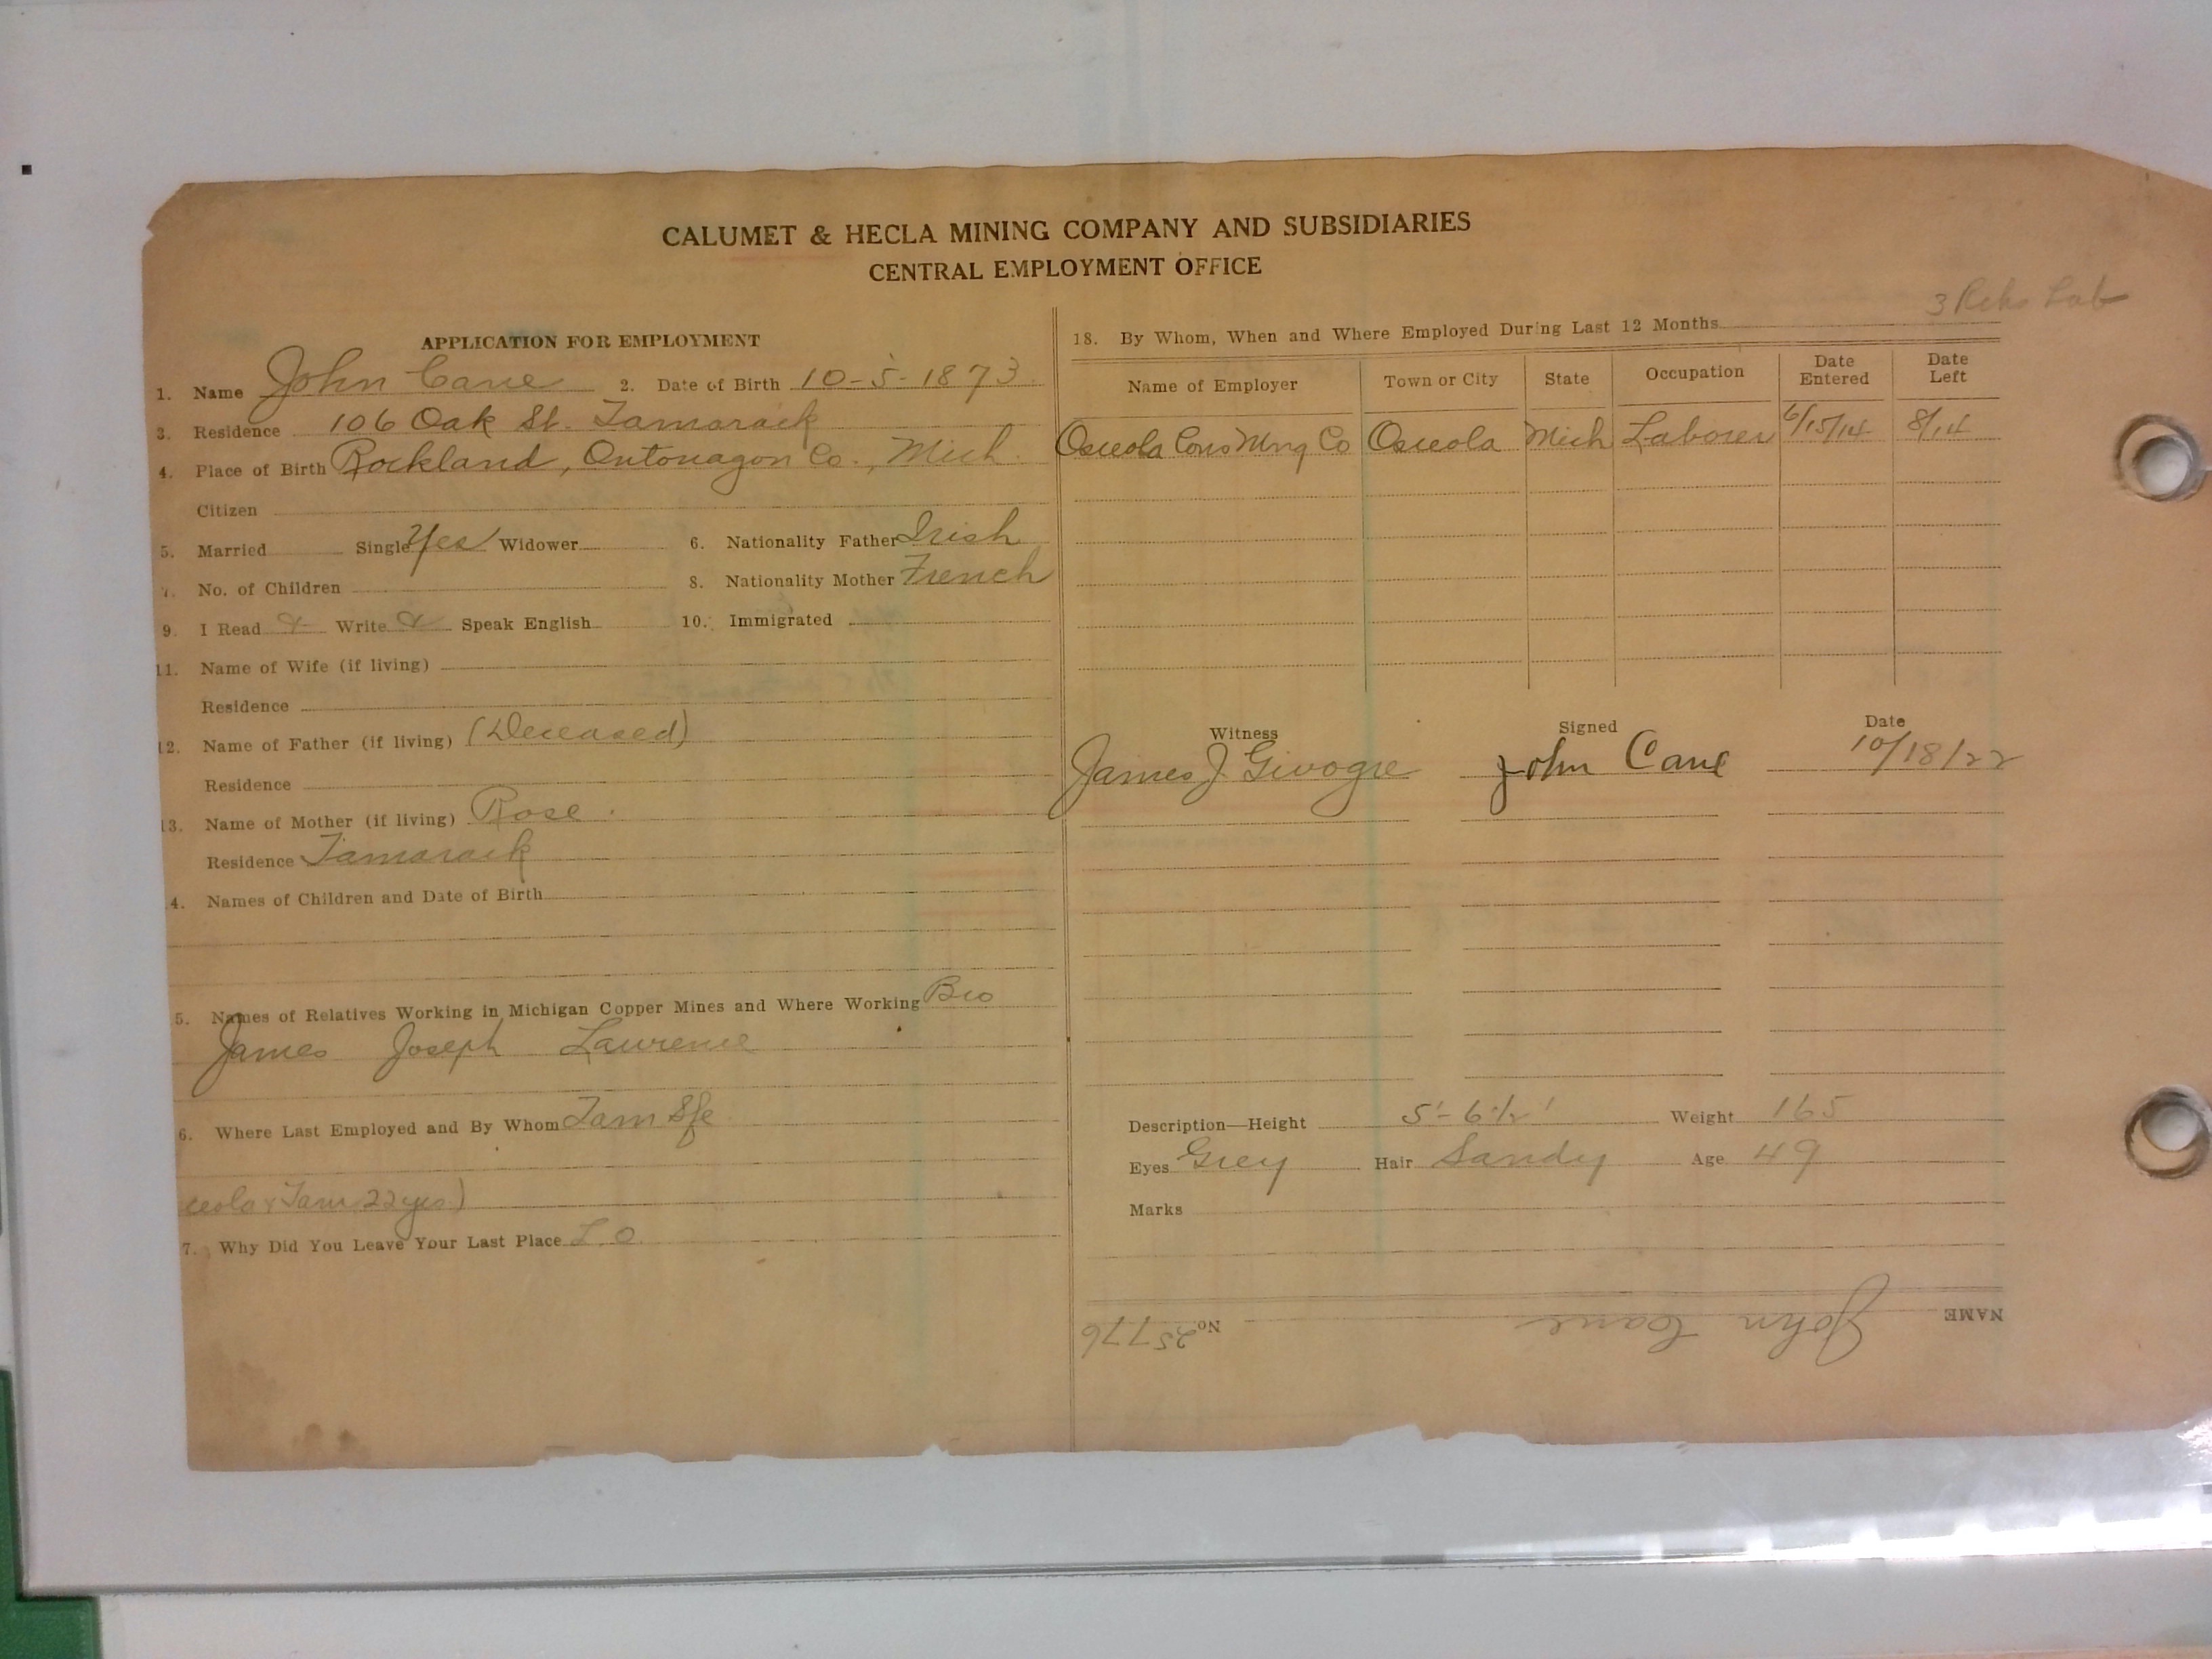 CALUMET & HECLA MINING COMPANY AND SUBSIDIARIES
CENTRAL EMPLOYMENT OFFICE
3 Lab
APPLICATION FOR EMPLOYMENT
1. Name John Cane 2. Date of Birth 10-5-1873
3. Residence 106 Oak St. Tamarack
4. Place of Birth Rockland, Ontonagon Co., Mich.
Citizen
5. Married Single Yes Widower 6. Nationality Father Irish
7. No. of Children 8. Nationality Mother French
9. I Read & Write & Speak English 10. Immigrated
11. Name of Wife (if living)
Residence
12. Name of Father (if living) (Deceased)
Residence
13. Name of Mother (if living) Rose.
Residence Tamarack
4. Names of Children and Date of Birth
5. Names of Relatives Working in Michigan Copper Mines and Where Working Bro
James Joseph Lawrence
6. Where Last Employed and By Whom Tam
ceola & Tam 22 yrs)
7. Why Did You Leave Your Last Place L.O.
18. By Whom, When and Where Employed During Last 12 Months
Name of Employer Town or City State Occupation Date Entered Date Left
Osceola Cons Mng Co Osceola Mich Laborer 6/15/14 8/14
Witness Signed Date
James J. John Cane 10/18/22
Description—Height 5'-6 1/2' Weight 165
Eyes Grey Hair Sandy Age 49
Marks
NAME John Cane No 25776